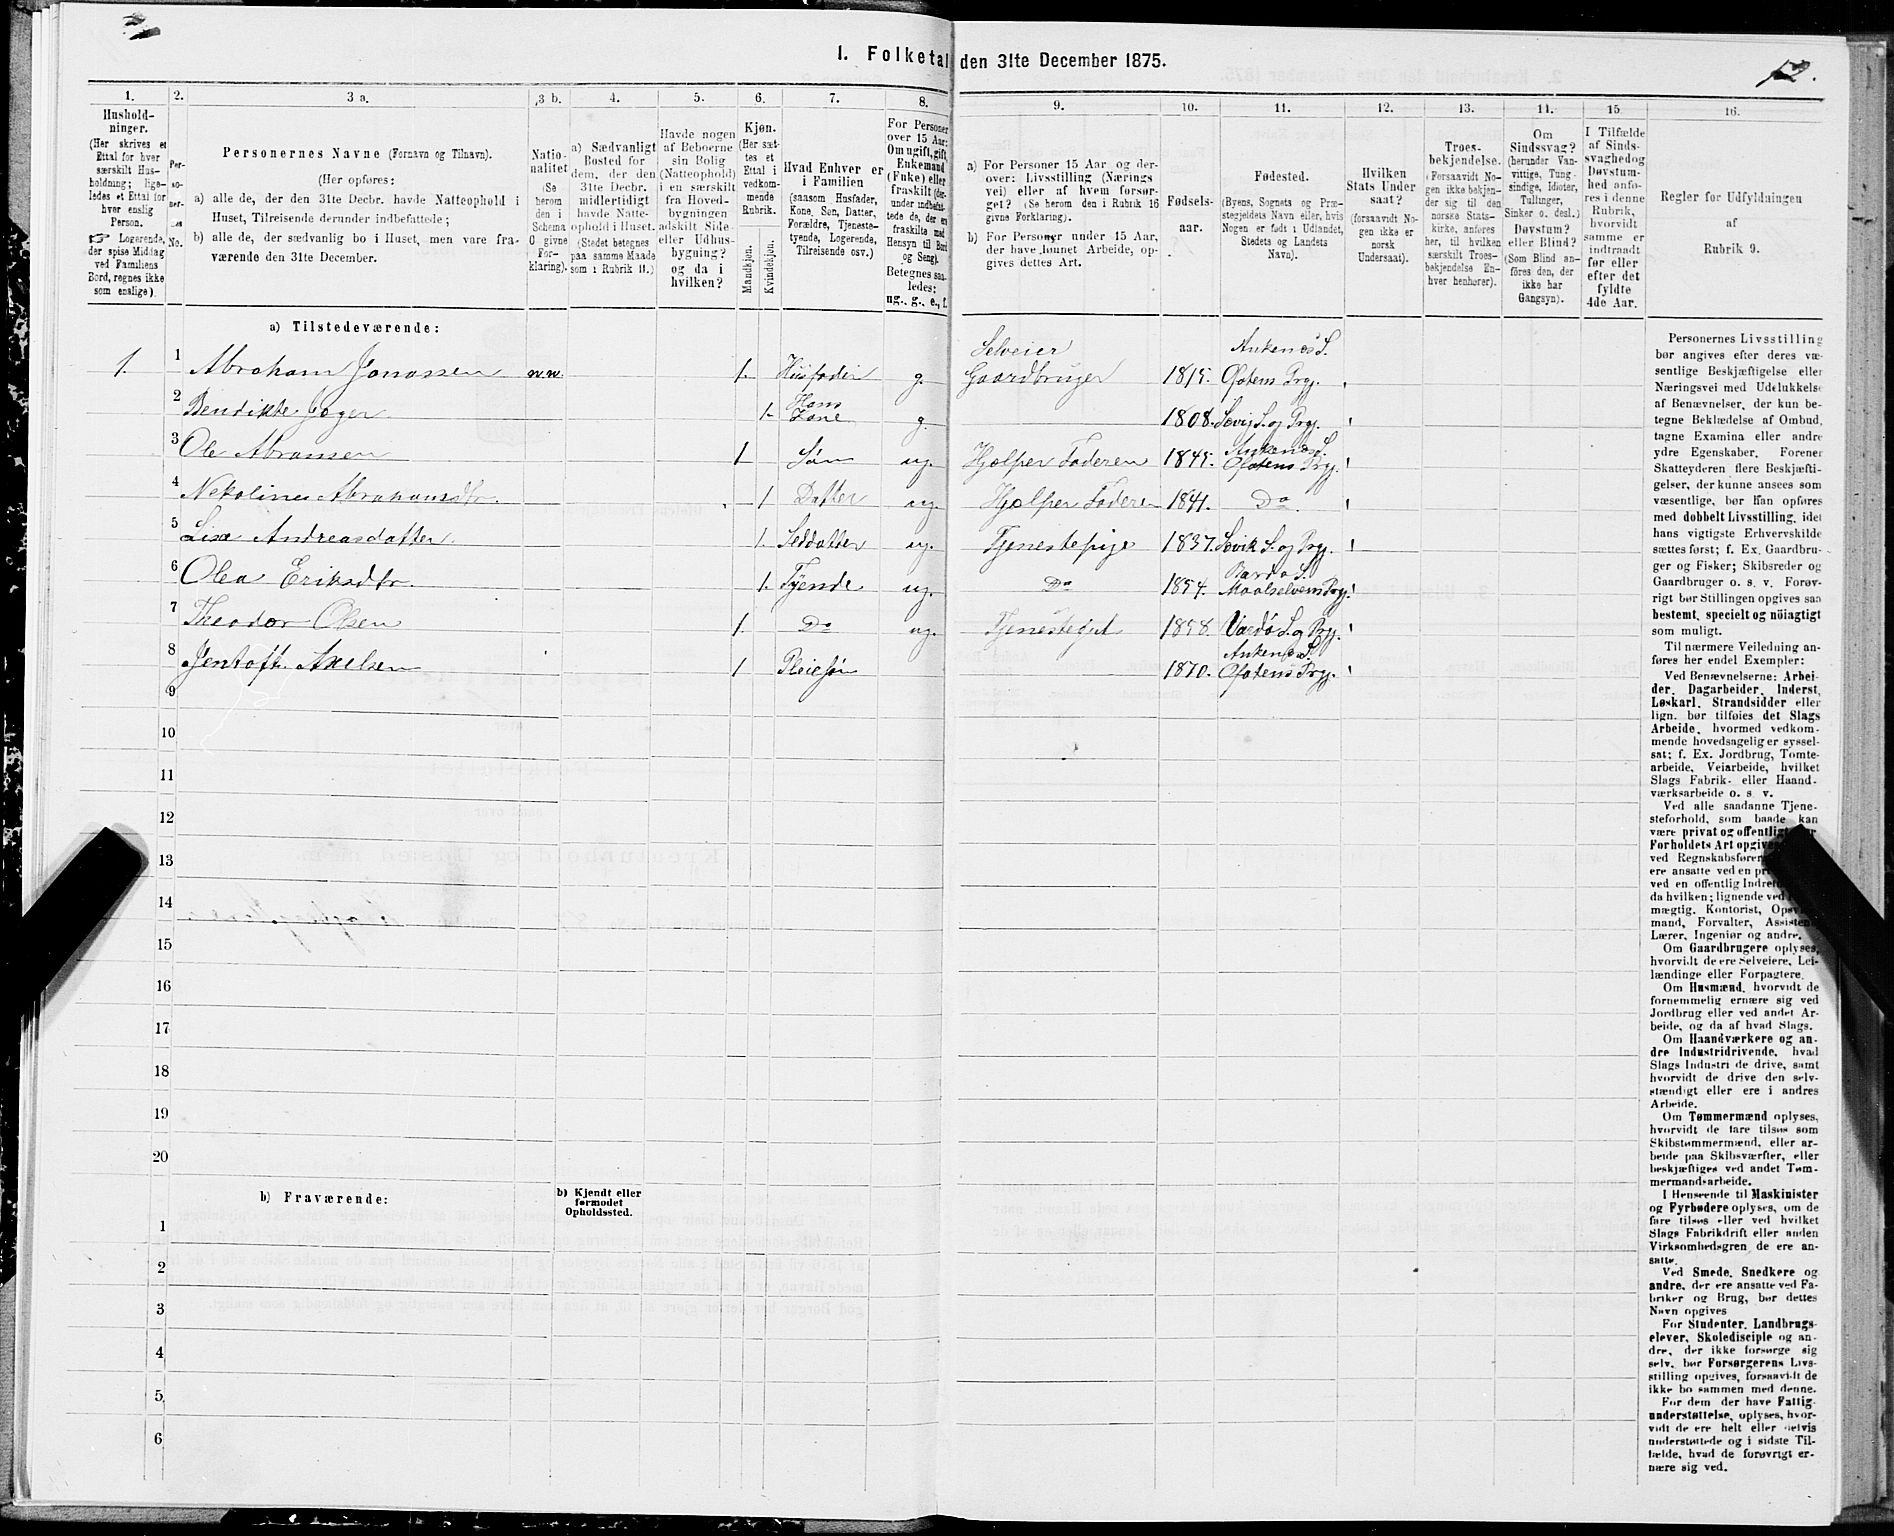 1. Folketal den 31te December 1875.
12.
1.
Hushold-
ninger.
(Her skrives et
Ettal for hver
særskilt Hus-
holdning; lige-
ledes et Ettal for
hver enslig
Person.
Logerende,
der spise Middag
ved Familiens
Bord, regnes ikke
som enslige).
2.
Per-
so-
ner-
nes
No.
3 a.
Personernes Navne (Fornavn og Tilnavn).
(Her opføres:
a) alle de, der den 31te Decbr. havde Natteophold i
Huset, Tilreisende derunder indbefattede;
b) alle de, der sædvanlig bo i Huset, men vare fra-
værende den 31te December.
3 b.
Natio-
nalitet
(Se
herom
den i
Schema
O givne
For-
klaring).
4.
a) Sædvanligt
Bosted for
dem, der den
31te Decbr.
midlertidigt
havde Natte-
ophold i Huset.
(Stedet betegnes
paa samme Maade
som i Rubrik 11.)
5.
Havde nogen
af Beboerne
sin Bolig
(Natteophold)
i en særskilt
fra Hoved-
bygningen
adskilt Side-
eller Udhus-
bygning?
og da i
hvilken?
6.
Kjøn.
(Her sæt-
tes et
Ettal i
vedkom-
mende
Rubrik.
Mandkjøn.
Kvindekjøn.
7.
Hvad Enhver er
i Familien
(saasom Husfader,
Kone, Søn, Datter,
Forældre, Tjeneste-
tyende, Logerende,
Tilreisende osv.)
8.
For Personer
over 15 Aar:
Om ugift, gift,
Enkemand
(Enke) eller
fraskilt (der-
under indbefat-
tede de, der ere
fraskilte med
Hensyn til Bord
og Seng).
Betegnes saa-
ledes:
ug., g., e., f.
9.
a) For Personer 15 Aar og der-
over: Livsstilling (Nærings
vei) eller af hvem forsør-
get? (Se herom den i Rubrik 16
givne Forklaring).
b) For Personer under 15 Aar,
der have lønnet Arbeide, op-
gives dettes Art.
10.
Fødsels-
aar.
11.
Fødested.
(Byens, Sognets og Præ-
stegjeldets Navn eller, hvis
Nogen er født i Udlandet,
Stedets og Landets
Navn).
12.
Hvilken
Stats Under
saat?
(forsaavidt No-
gen ikke er
norsk
Undersaat).
13.
Troes-
bekjendelse.
(Forsaavidt No-
gen ikke bekjen-
der sig til den
norske Stats-
kirke, anføres
her, til hvilken
særskilt Troes-
bekjendelse En-
hver henhører).
14.
Om
Sindssvag?
(herunder Van-
vittige, Tung-
sindige, Idioter,
Tullinger,
Sinker o. desl.)
Døvstum?
eller Blind?
(Som Blind an-
føres den, der
ikke har
Gangsyn).
15
I Tilfælde
af Sinds-
svaghed og
Døvstum-
hed anfø-
res i denne
Rubrik,
hvorvidt
samme er
indtraadt
før eller
efter det
fyldte
4de Aar.
16.
Regler for Udfyldningen
af
Rubrik 9.
a) Tilstedeværende:
1. 1 Abraham Jonassen n.n. 1. Husfader g. Selveier Gaardbruger 1815. Ankenæs S. Ofotens Prgj.
2 Bendikte Joger 1. Hans Kone g. 1808. Levig S. og Prgj.
3 Ole Abramsen 1 Søn ug. Hjælper Faderen 1845. Ankenæs S. Ofotens Prgj.
4 Nekoline Abrahamsdtr. 1 Datter ug. Hjælper Faderen 1841. Do.
5 Lisa Andreasdatter 1. Seddatter ug. Tjenestepige 1837. Levik S. og Prgj.
6 Olea Eriksdtr. 1. Tyende ug. Do 1854. Bardo S. Maalselvens Prgj.
7 Theodor Olsen 1. Do ug. Tjenestegut 1858. Vardø S. og Prgj.
8 Jentoft Axelsen 1 Pleiesøn 1870. Ankenæs S. Ofotens Prgj.
9
10
11
12
13
14
15
16
17
18
19
20
b) Fraværende:
b) Kjendt eller
formodet
Opholdssted.
1
2
3
4
5
6
Personernes Livsstilling
bør angives efter deres væ-
sentlige Beskjæftigelse eller
Næringsvei med Udelukkelse
af Benævnelser, der kun be-
tegne Beklædelse af Ombud,
tagne Examina eller andre
ydre Egenskaber. Forener
Skatteyderen flere Beskjæfti-
gelser, der kunne ansees som
væsentlige, bør han opføres
med dobbelt Livsstilling, idet
hans vigtigste Erhvervskilde
sættes først; f. Ex. Gaardbru-
ger og Fisker; Skibsreder og
Gaardbruger o. s. v. Forøv-
rigt bør Stillingen opgives saa
bestemt, specielt og nøiagtigt
som muligt.
Til nærmere Veiledning an-
føres her endel Exempler:
Ved Benævnelserne: Arbei-
der, Dagarbeider, Inderst,
Løskarl, Strandsidder eller
lign. bør tilføies det Slags
Arbeide, hvormed vedkom-
mende hovedsagelig er syssel-
sat; f. Ex. Jordbrug, Tomte-
arbeide, Veiarbeide, hvilket
Slags Fabrik- eller Haand-
værksarbeide o. s. v.
Ved alle saadanne Tjene-
steforhold, som baade kan
være privat og offentligt
Forholdets Art opgives
ved Regnskabsfører
ere ansatte ved en
ved en offentlig
da hvilken; lignende ved
mægtig, Kontorist,
mand, Forvalter,
Lærer, Ingeniør og andre.
Om Gaardbrugere oplyses,
hvorvidt de ere Selveiere, Lei-
lændinge eller Forpagtere.
Om Husmænd, hvorvidt de
fornemmelig ernære sig ved
Jordbrug eller ved andet Ar-
beide, og da af hvad Slags.
Om Haandværkere og an-
dre Industridrivende, hvad
Slags Industri de drive, samt
hvorvidt de drive den selv-
stændigt eller ere i andres
Arbeide.
Om Tømmermænd oplyses,
hvorvidt de fare tilsøs som
Skibstømmermænd, eller ar-
beide paa Skibsværfter, eller
beskjæftiges ved andet Tøm-
mermandsarbeide.
I Henseende til Maskinister
og Fyrbødere oplyses, om de
fare tilsøs eller ved hvilket
Slags Fabrikdrift eller anden
Virksomhedsgren de ere an-
satte.
Ved Smede, Snedkere og
andre, der ere ansatte ved Fa-
briker og Brug, bør dettes
Navn opgives
For Studenter, Landbrugs-
elever, Skoledisciple og an-
dre, der ikke forsørge sig
selv, bør Forsørgerens Livs-
stilling opgives, forsaavidt de
ikke bo sammen med denne.
For dem der have Fattig-
understøttelse, oplyses, hvor-
vidt de ere helt eller delvis
understøttede og i sidste Til-
fælde, hvad de forøvrigt er-
nære sig ved.